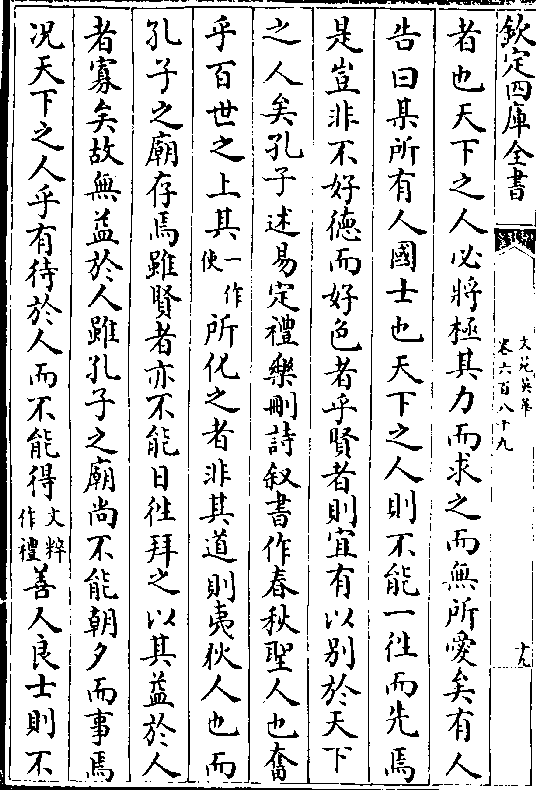 欽定四庫全書
文苑英華
卷六百八十九
十九
者也天下之人必將極其力而求之而無所愛矣有人
告曰某所有人國士也天下之人則不能一徃而先焉
是豈非不好德而好色者乎賢者則宜有以别於天下
之人矣孔子述易定禮樂刪詩叙書作春秋聖人也奮
乎百世之上其一作使所化之者非其道則夷狄人也而
孔子之廟存焉雖賢者亦不能日徃拜之以其益於人
者寡矣故無益於人雖孔子之廟尚不能朝夕而事焉
况天下之人乎有待於人而不能得文粹作禮善人良士則不